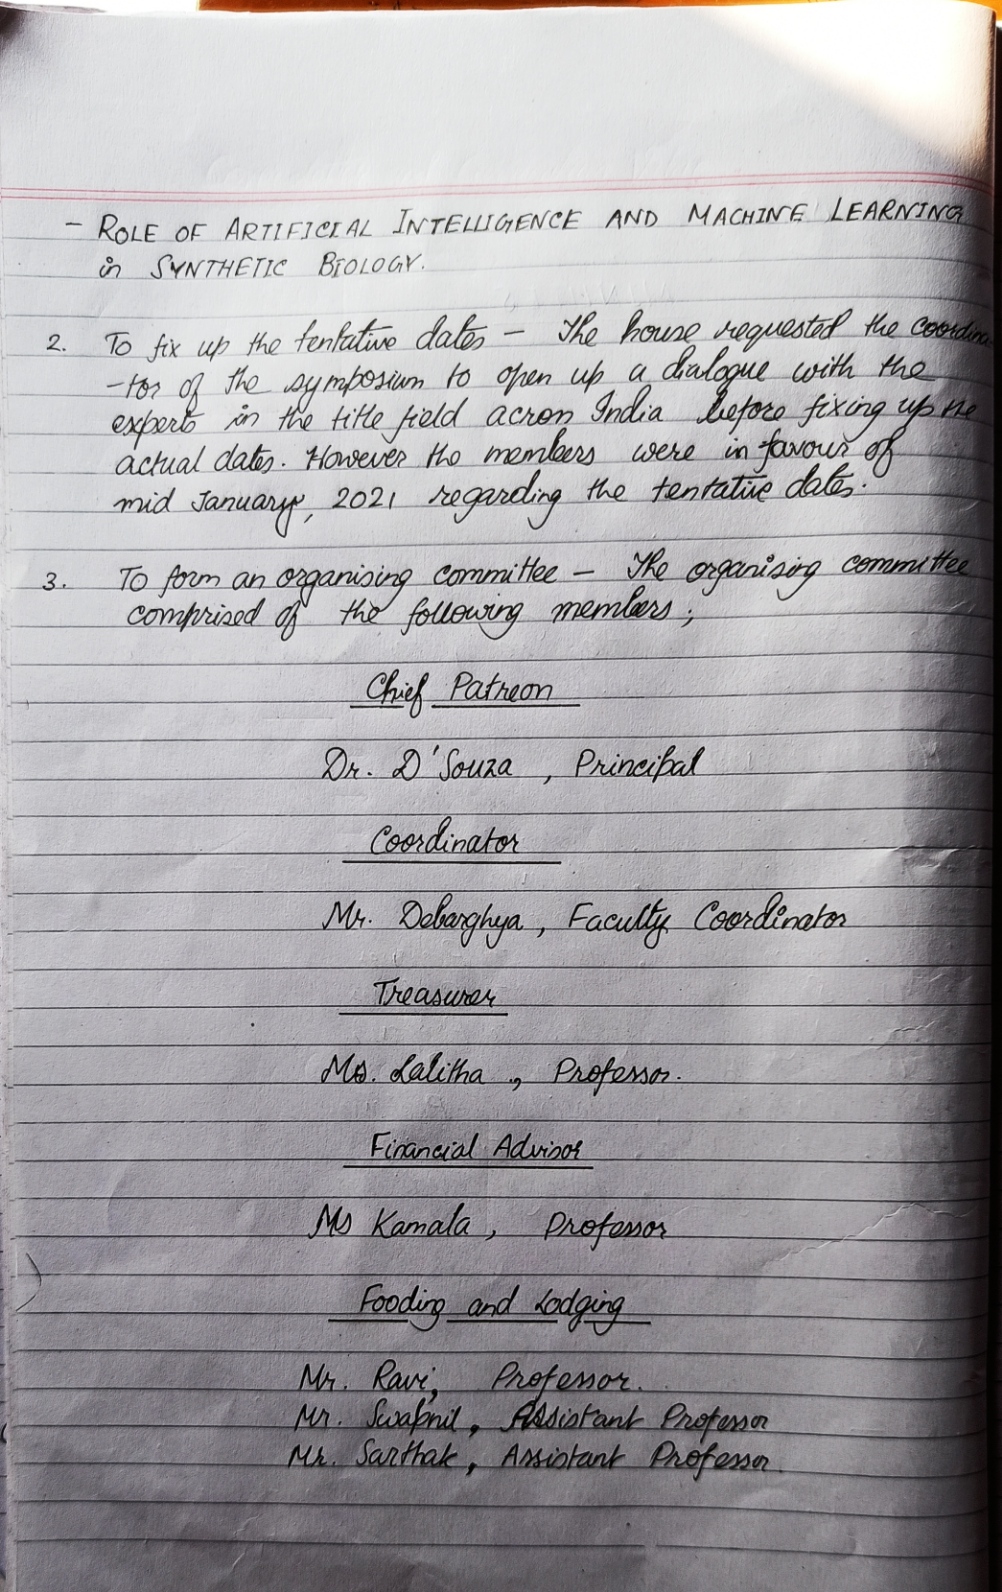 - ROLE OF ARTIFICIAL INTELLIGENCE AND MACHINE LEARNING
in SYNTHETIC BIOLOGY.
2. To fix up the tentative dates - The house requested the coordina
-tor of the symposium to open up a dialogue with the
experts in the title field across India before fixing up the
actual dates. However the members were in favour of
mid January, 2021 regarding the tentative dates.
3. To form an organising committee - The organising committee
comprised of the following members;
Chief Patreon
Dr. D'Souza, Principal
Coordinator
Mr. Debarghya, Faculty Coordinator
Treasurer
Ms. Lalitha, Professor.
Financial Advisor
Ms Kamala, Professor
Fooding and Lodging
Mr. Ravi, Professor.
Mr. Swapnil, Assistant Professor
Mr. Sarthak, Assistant Professor